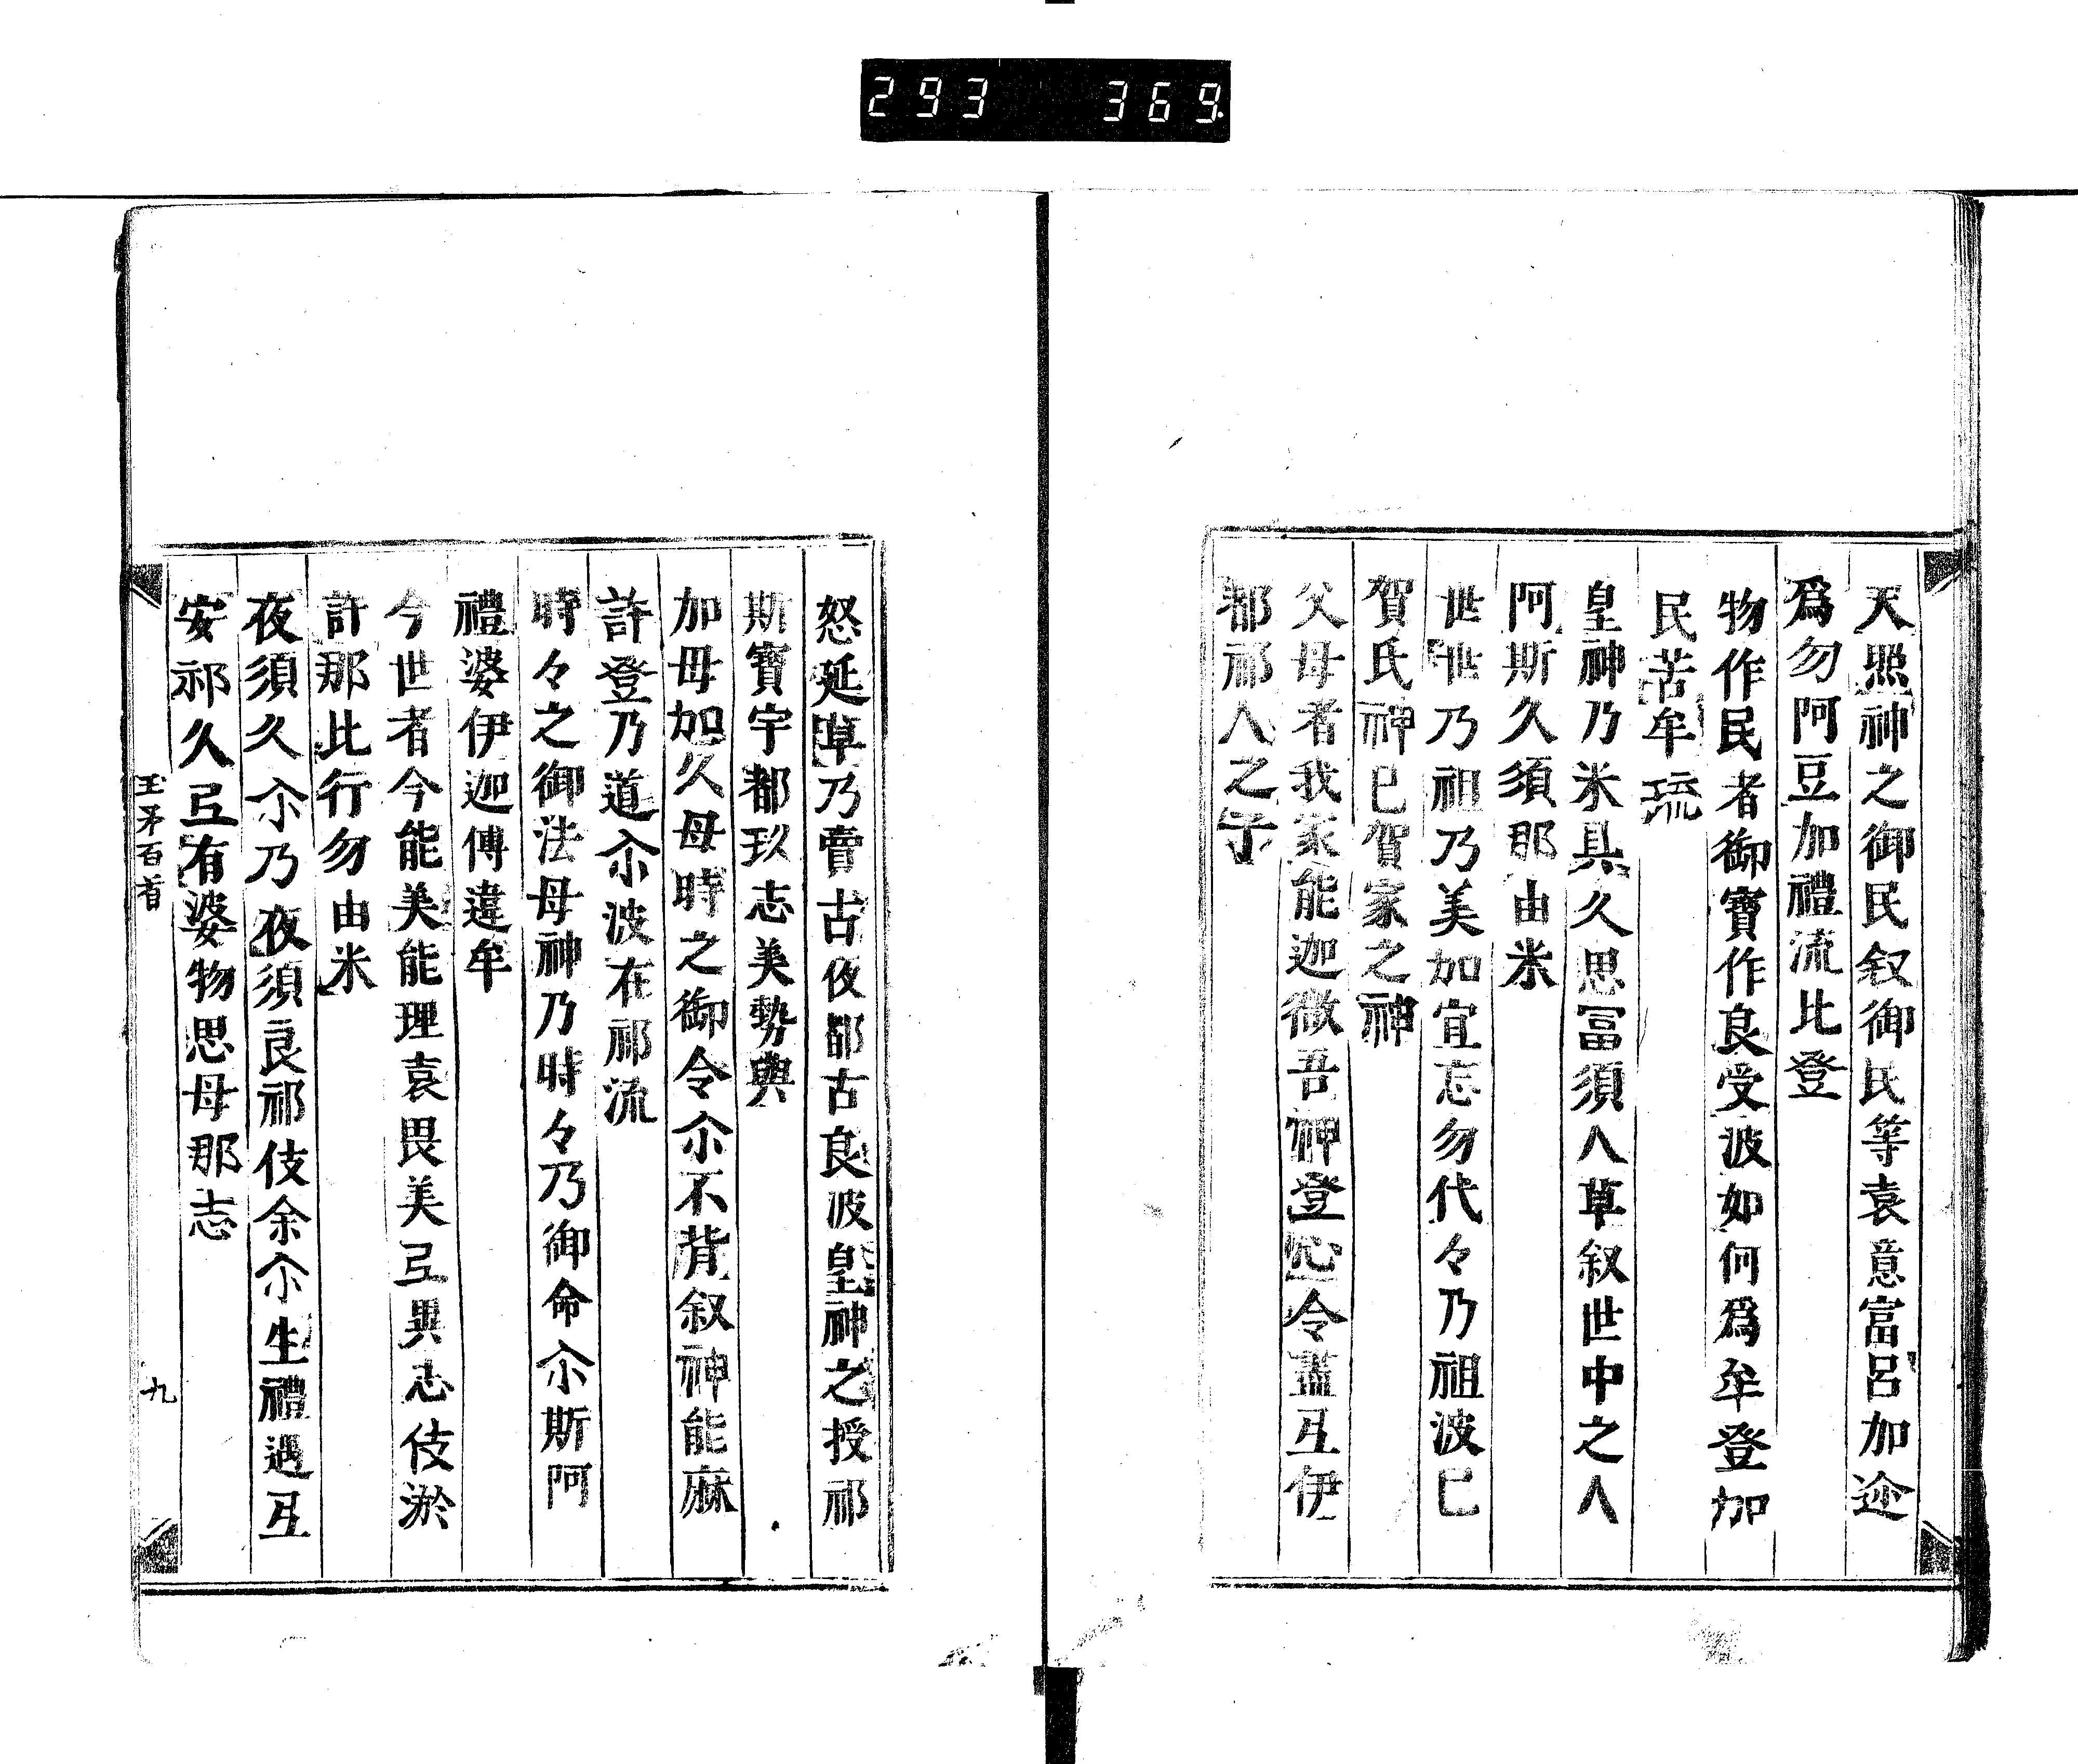 293 369
天照神之御民叙御民等袁意富呂加迩
爲勿阿豆加禮流比登
物作民者御寶作良受波如何爲牟登加
民苦牟琉
皇神乃米具久思冨須八草叙世中之人
阿斯久須那由米
世世乃祖乃美加宜志勿代々乃祖波己
賀氏神已賀家之神
父母者我家能迦微吾神登心令盡弖伊
都祁人之子
怒延草乃賣古夜都古良波皇神之授祁
斯寶宇都玖志美勢與
加毋加久母時之御令尒不背叙神能麻
許登乃道尒波在祁流
時々之御法母神乃時々乃御命尒斯阿
禮婆伊迦傅違牟
今世者今能美能理袁畏美弖異志伎淤
許那比行勿由米
夜須久尒乃夜須良祁伎余尒生禮遇弖
安祁久弖有婆物思母那志
玉矛百首
九